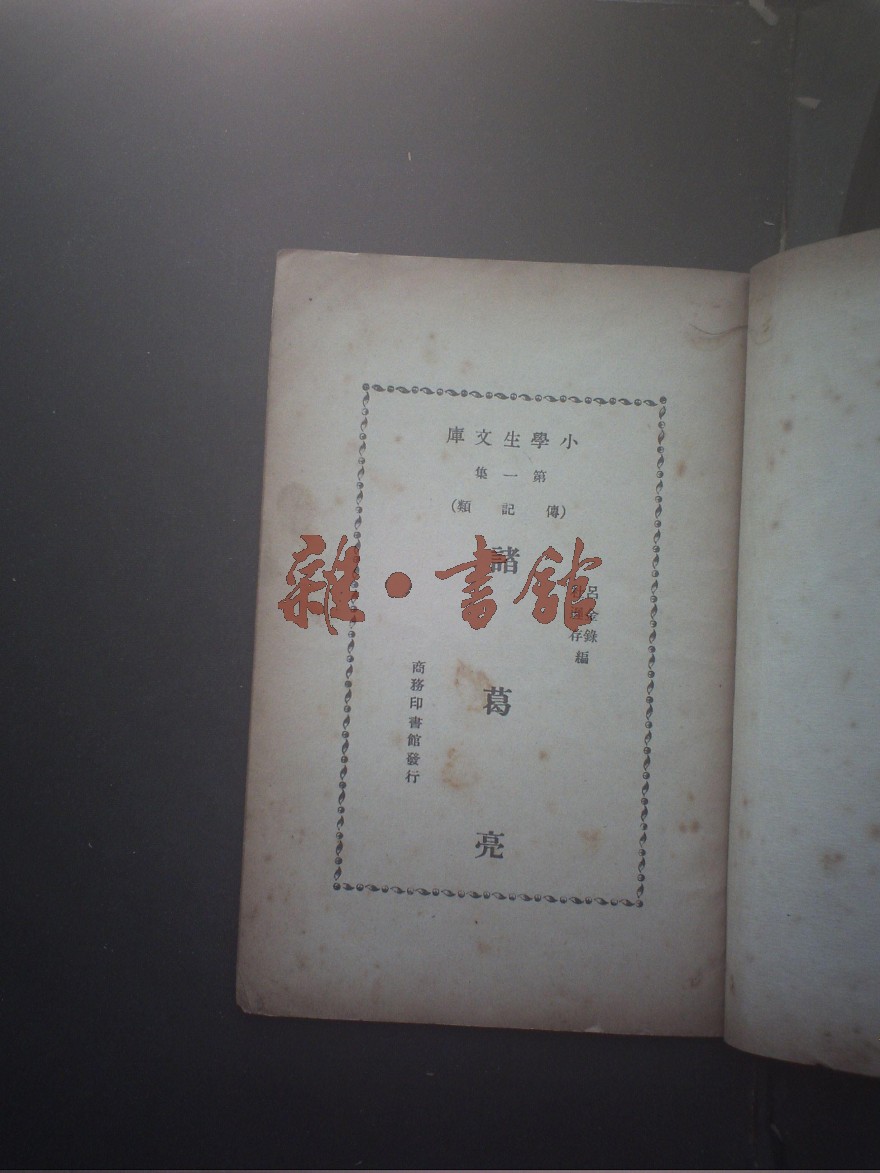 小學生文庫
第一集
(傳記類)
呂金錄
存
編
諸葛亮
商務印書館發行
雜·書館